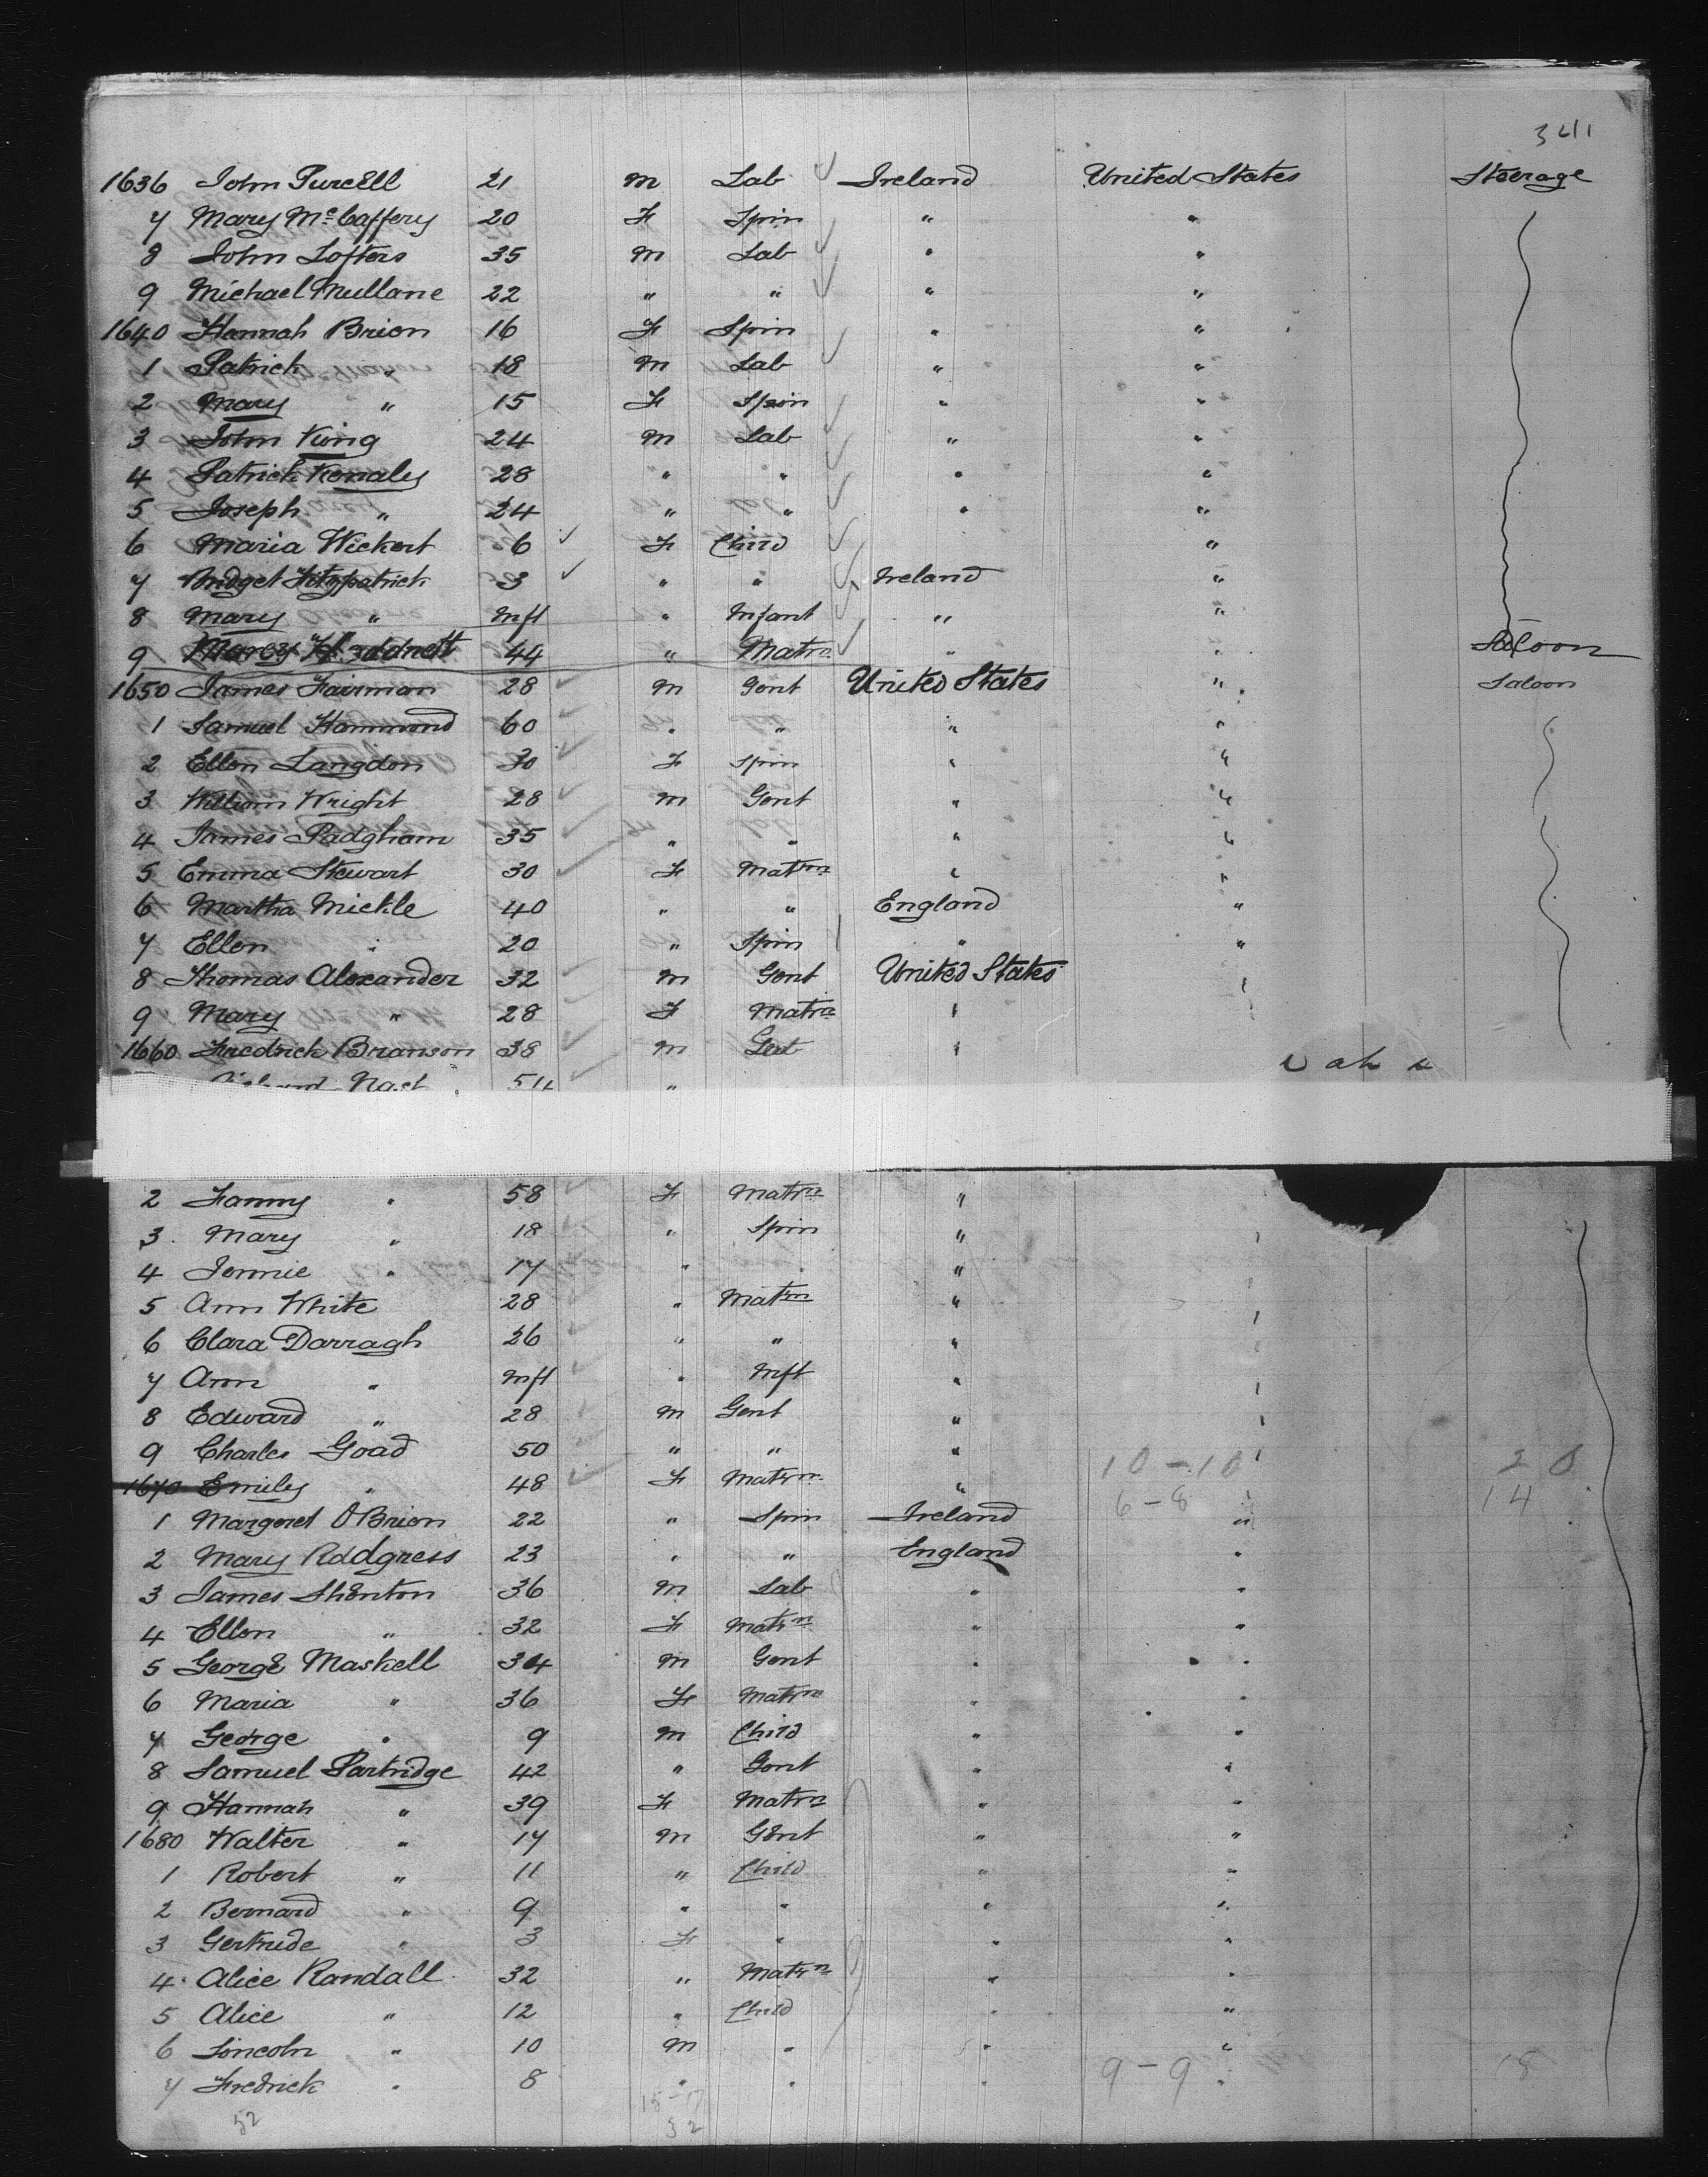 3411
1636 John Purcell 21 m Lab Ireland United States Steerage
7 Mary McCaffery 20 F Spin " "
8 John Lofters 35 m Lab " "
9 Michael Mullane 22 " " " "
1640 Hannah Brien 16 F Spin " "
1 Patrick " 18 m Lab " "
2 Mary " 15 F Spin " "
3 John King 24 m Lab " "
4 Patrick Kenaley 28 " " " "
5 Joseph " 24 " " " "
6 Maria Wickert 6 F Child "
7 Bridget Fitzpatrick 3 " " Ireland "
8 Mary " Inft " Infant " "
9 Mary 44 " Matrn " " Saloon
1650 James Fairman 28 m Gent United States " Saloon
1 Samuel Hammond 60 " " " "
2 Ellen Langdon 30 F Spin " "
3 William Wright 28 m Gent " "
4 James Padgham 35 " " " "
5 Emma Stewart 30 F Matrn " "
6 Martha Mickle 40 " " England "
7 Ellen " 20 " Spin " "
8 Thomas Alexander 32 m Gent United States "
9 Mary " 28 F Matrn " "
1660 Fredrick Branson 38 m Gent "
54 "
2 Fanny " 58 F Matrn "
3 Mary " 18 " Spin " "
4 Jennie " 17 " " " "
5 Ann White 28 " Matrn " "
6 Clara Darragh 26 " " " "
7 Ann " Inft " Inft " "
8 Edward " 28 m Gent " "
9 Charles Goad 50 " " " " 10-10 20
1670 Emiley " 48 F Matrn " " 6-8 14
1 Margeret O Brien 22 " Spin Ireland "
2 Mary Roddgress 23 " " England "
3 James Shenton 36 m Lab " "
4 Ellen " 32 F Matrn " "
5 George Maskell 34 m Gent " "
6 Maria " 36 F Matrn " "
7 George " 9 m Child " "
8 Samuel Partridge 42 " Gent " "
9 Hannah " 39 F Matrn " "
1680 Walter " 17 m Gent " "
1 Robert " 11 " Child " "
2 Bernard " 9 " " " "
3 Gertrude " 3 F " " "
4 Alice Randall 32 " Matrn " "
5 Alice " 12 " Child " "
6 Lincoln " 10 m " " "
7 Fredrick " 8 " " " " 9-9 18
52 52